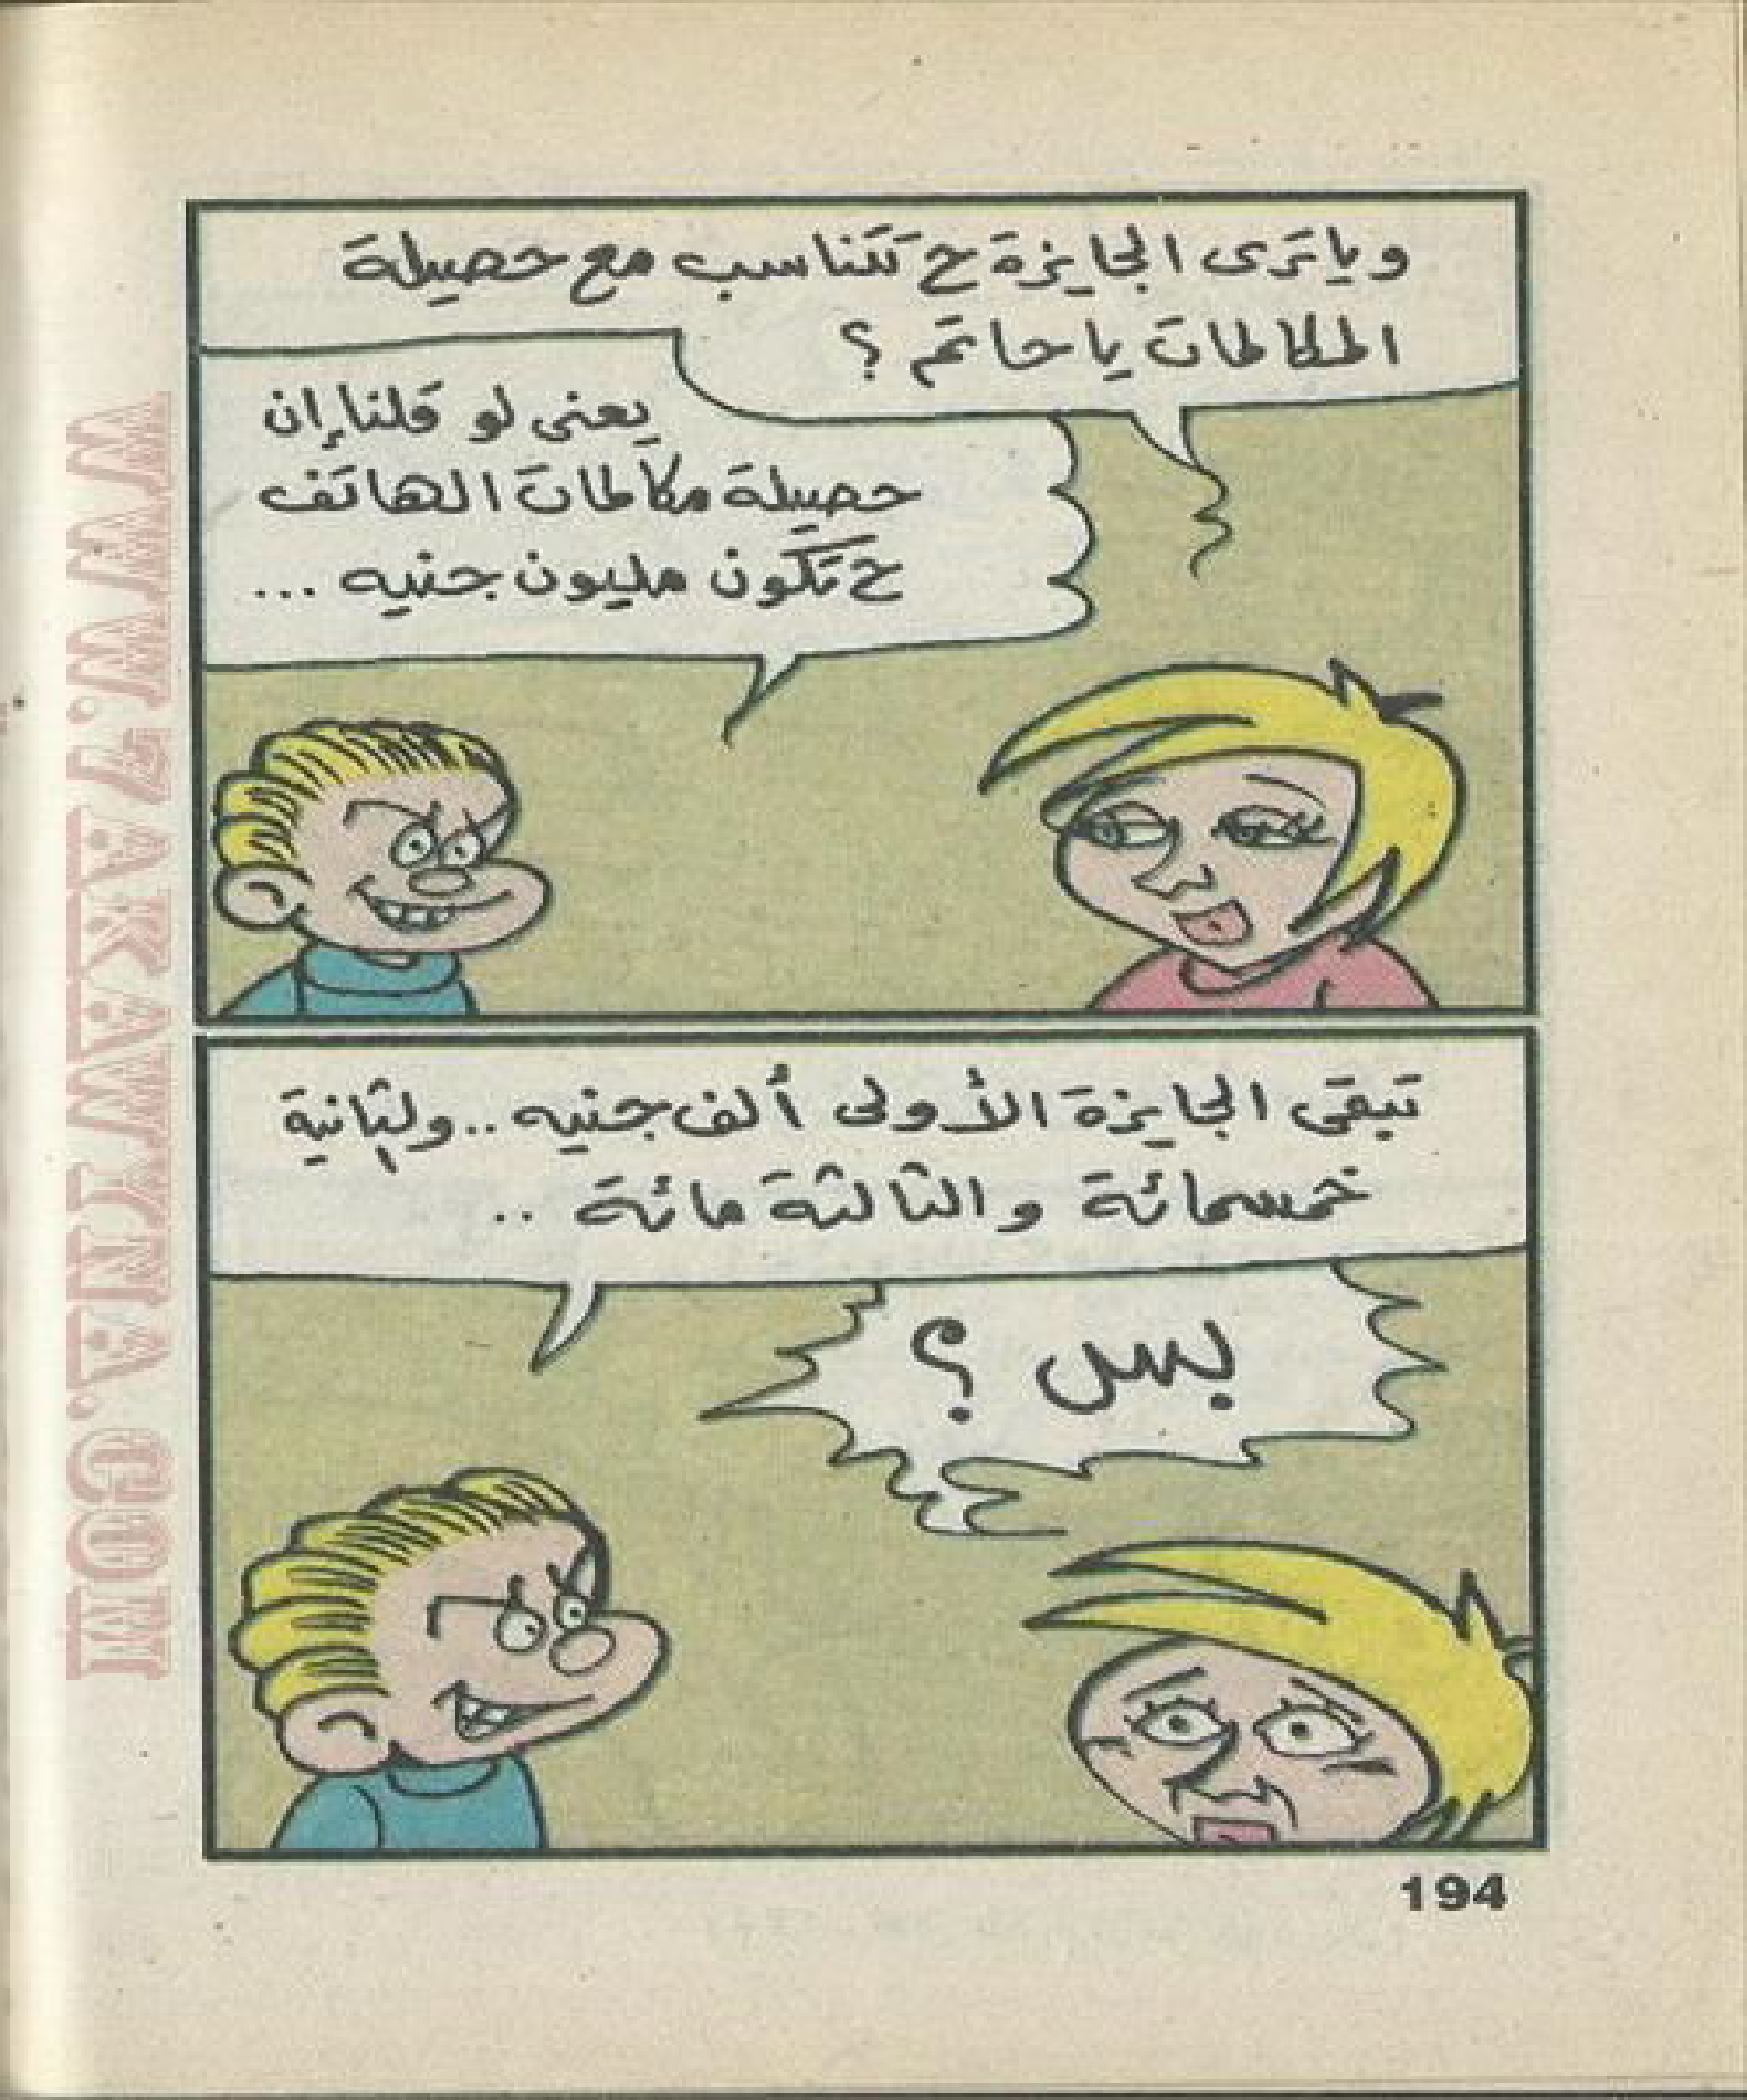 وياترى الجايزة ح تتناسب مع حصيلة
المكالمات ياحاتم ؟
يعنى لو قلنا إن
حصيلة مكالمات الهاتف
ح تكون مليون جنيه ...
تبقى الجايزة الأولى ألف جنيه .. ولثانية
خمسمائة والثالثة مائة ..
بس ؟
194
WWW.7AKAWITNA.COM